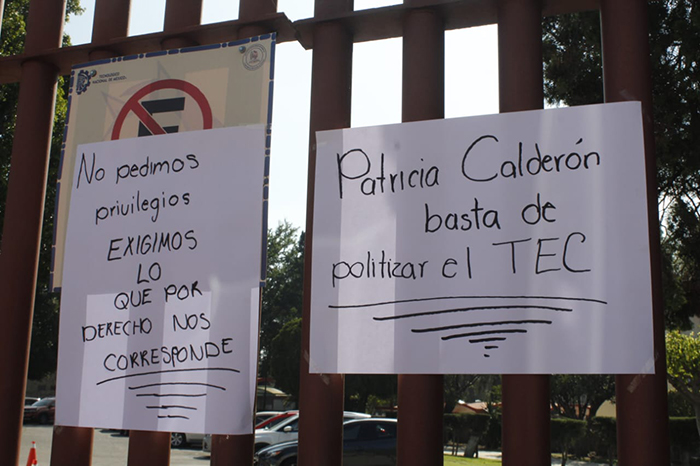 TECNOLÓGICO
NACIONAL DE MÉXICO
E
No pedimos
privilegios
EXIGIMOS
LO
QUE POR
DERECHO NOS
CORRESPONDE
Patricia Calderón
basta de
politizar el TEC